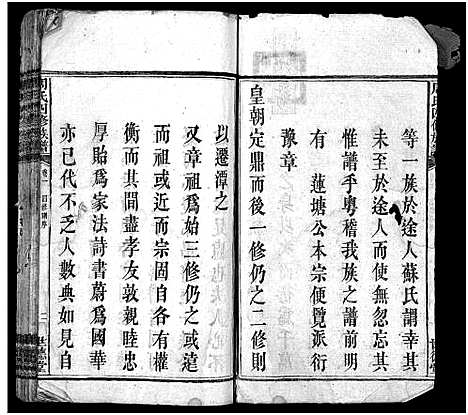 等一族於途人蘇氏謂幸其
未至於途人者
惟譜乎粵稽我族之譜前明
有蓮塘公本宗便覽派衍
豫章
皇朝定鼎而後一修仍之二修則
以遷潭之
又章祖為始三修仍之或遠
而祖或近而宗固自有經權
衡而其間盡孝友敦親睦忠
厚貽為家法詩書蔚為國華
亦已代不乏人數典如見自
周氏四修族譜
卷一
二
世德堂